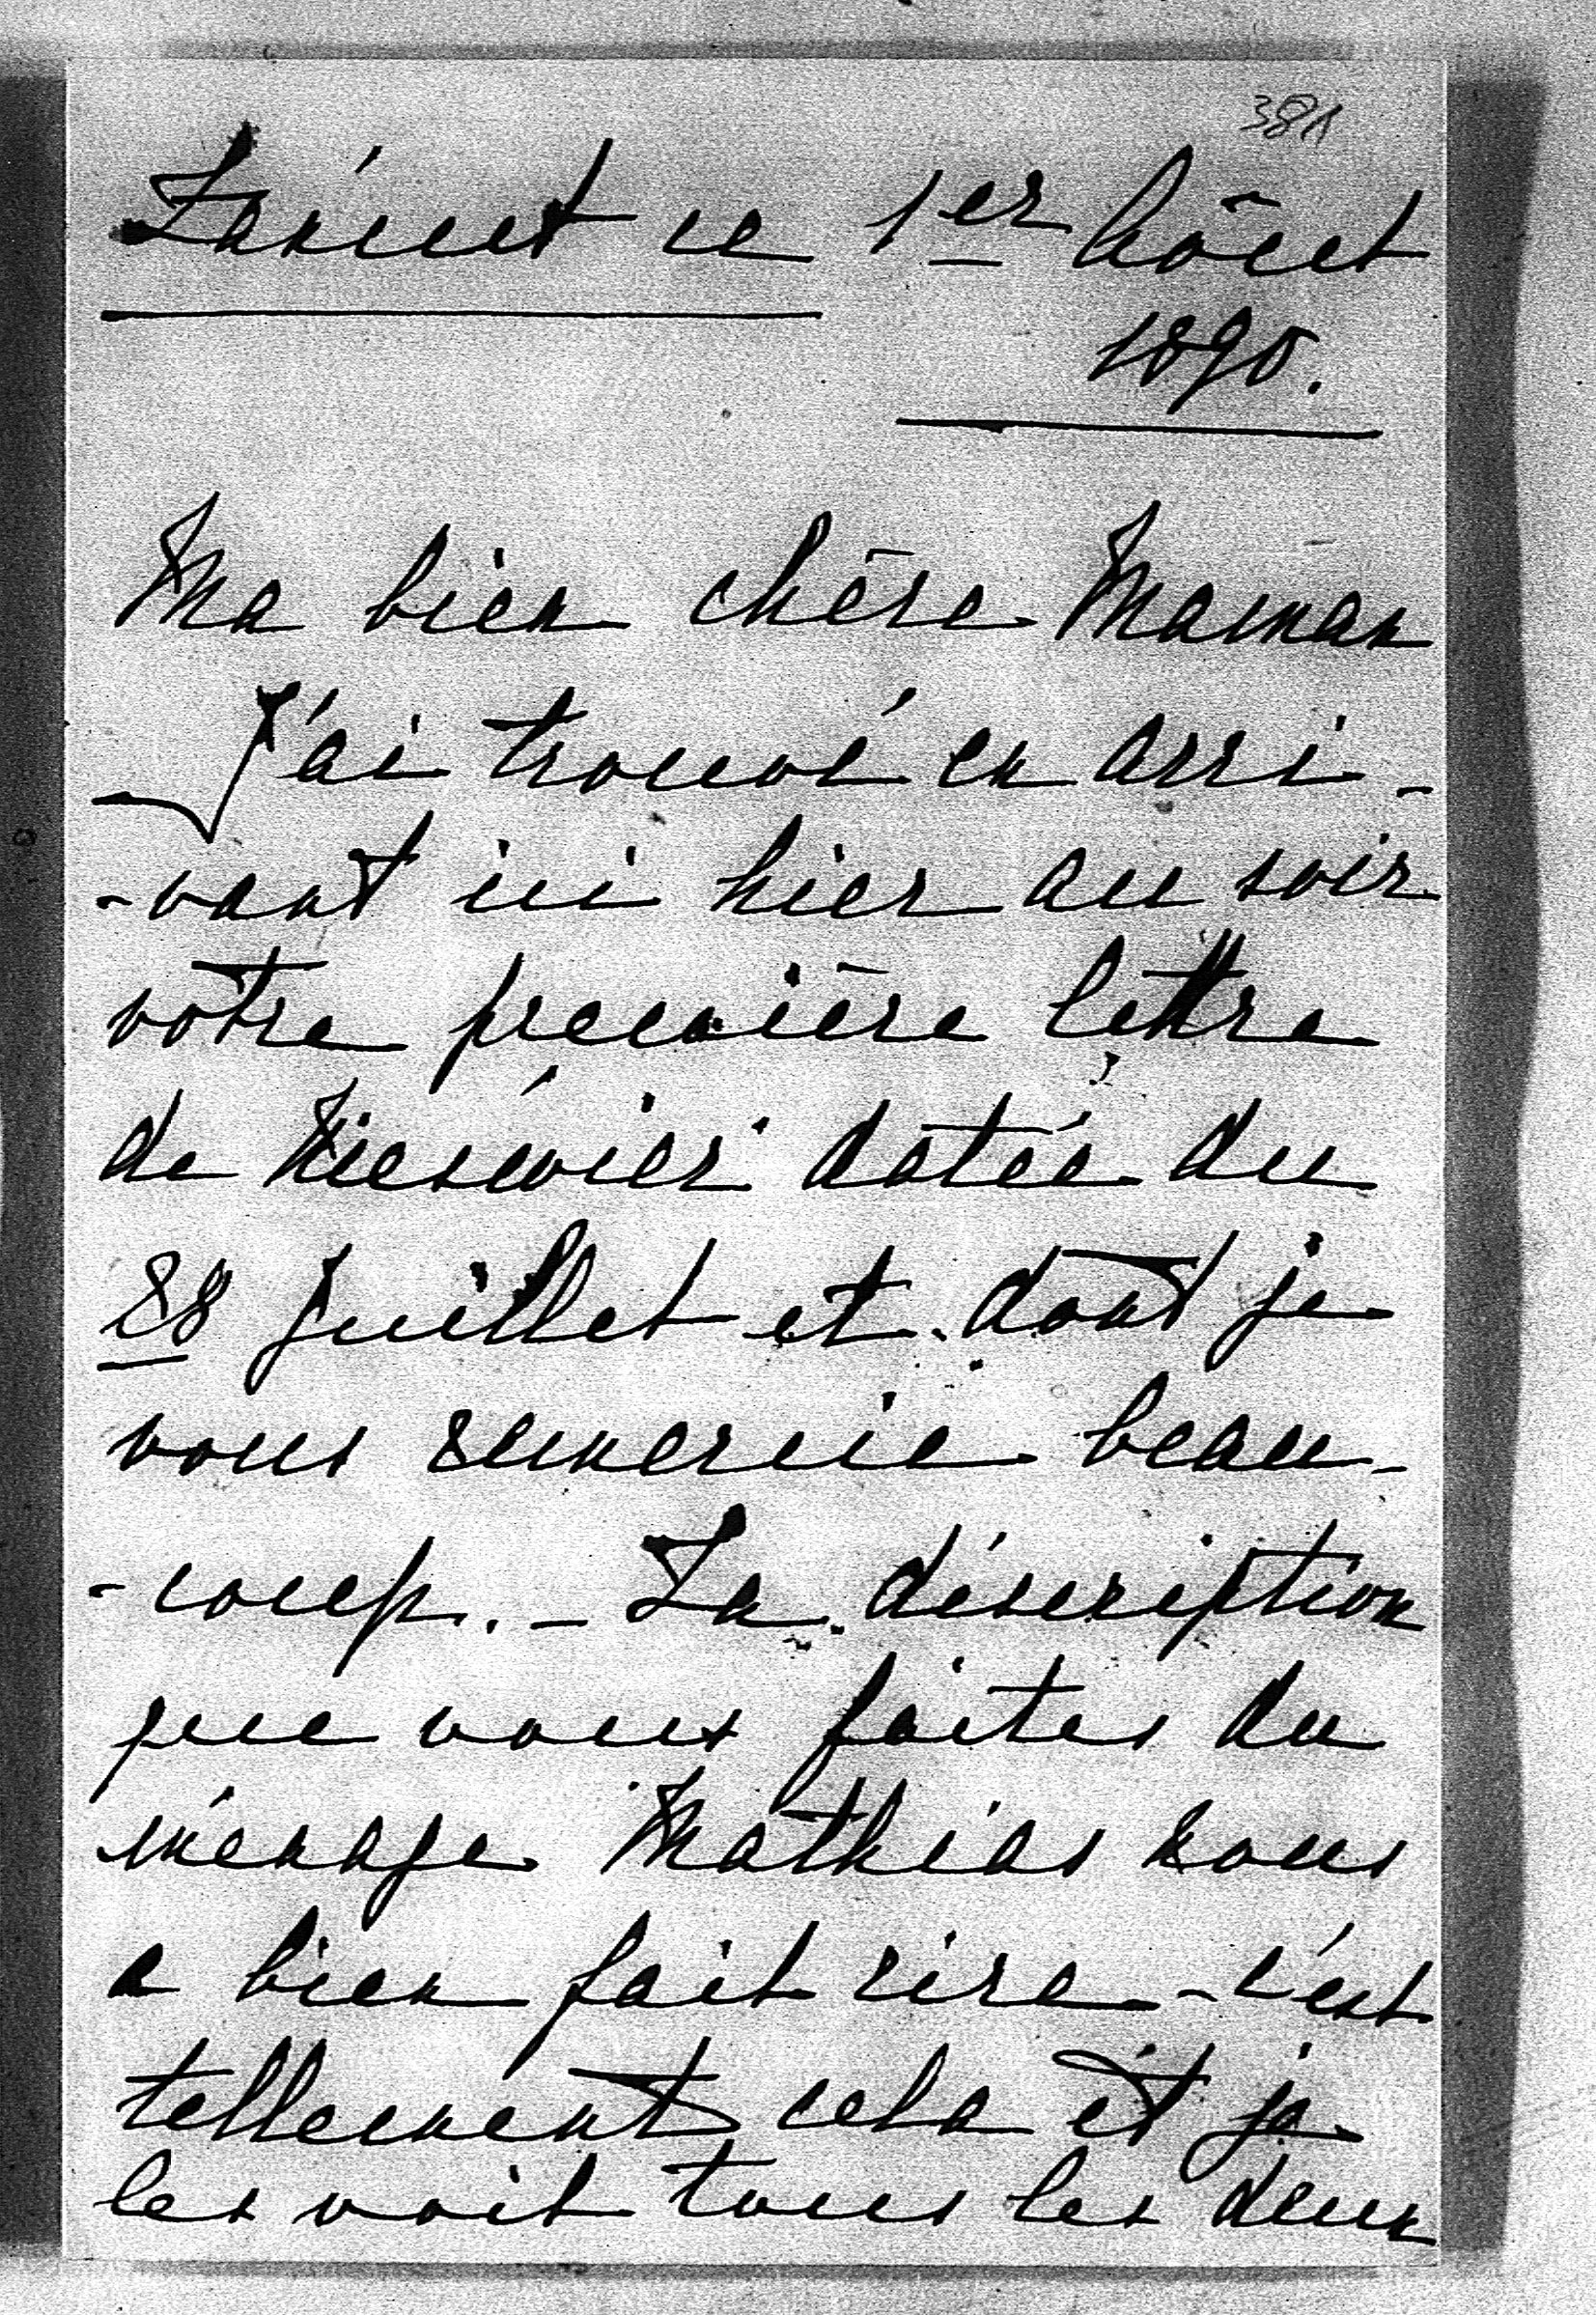 381
Łańcut ce 1er Aôut
1890.
Ma bien chère Maman
J'ai trouvé en arri-
-vant ici hier au soir
votre première lettre
de Nieświeź datée du
28 Juillet et dont je
vous remercie beau-
-coup. - La déscription
que vous faites du
ménage Mathias nous
a bien fait rire - c'est
tellement cela et je
les voit tous les deux